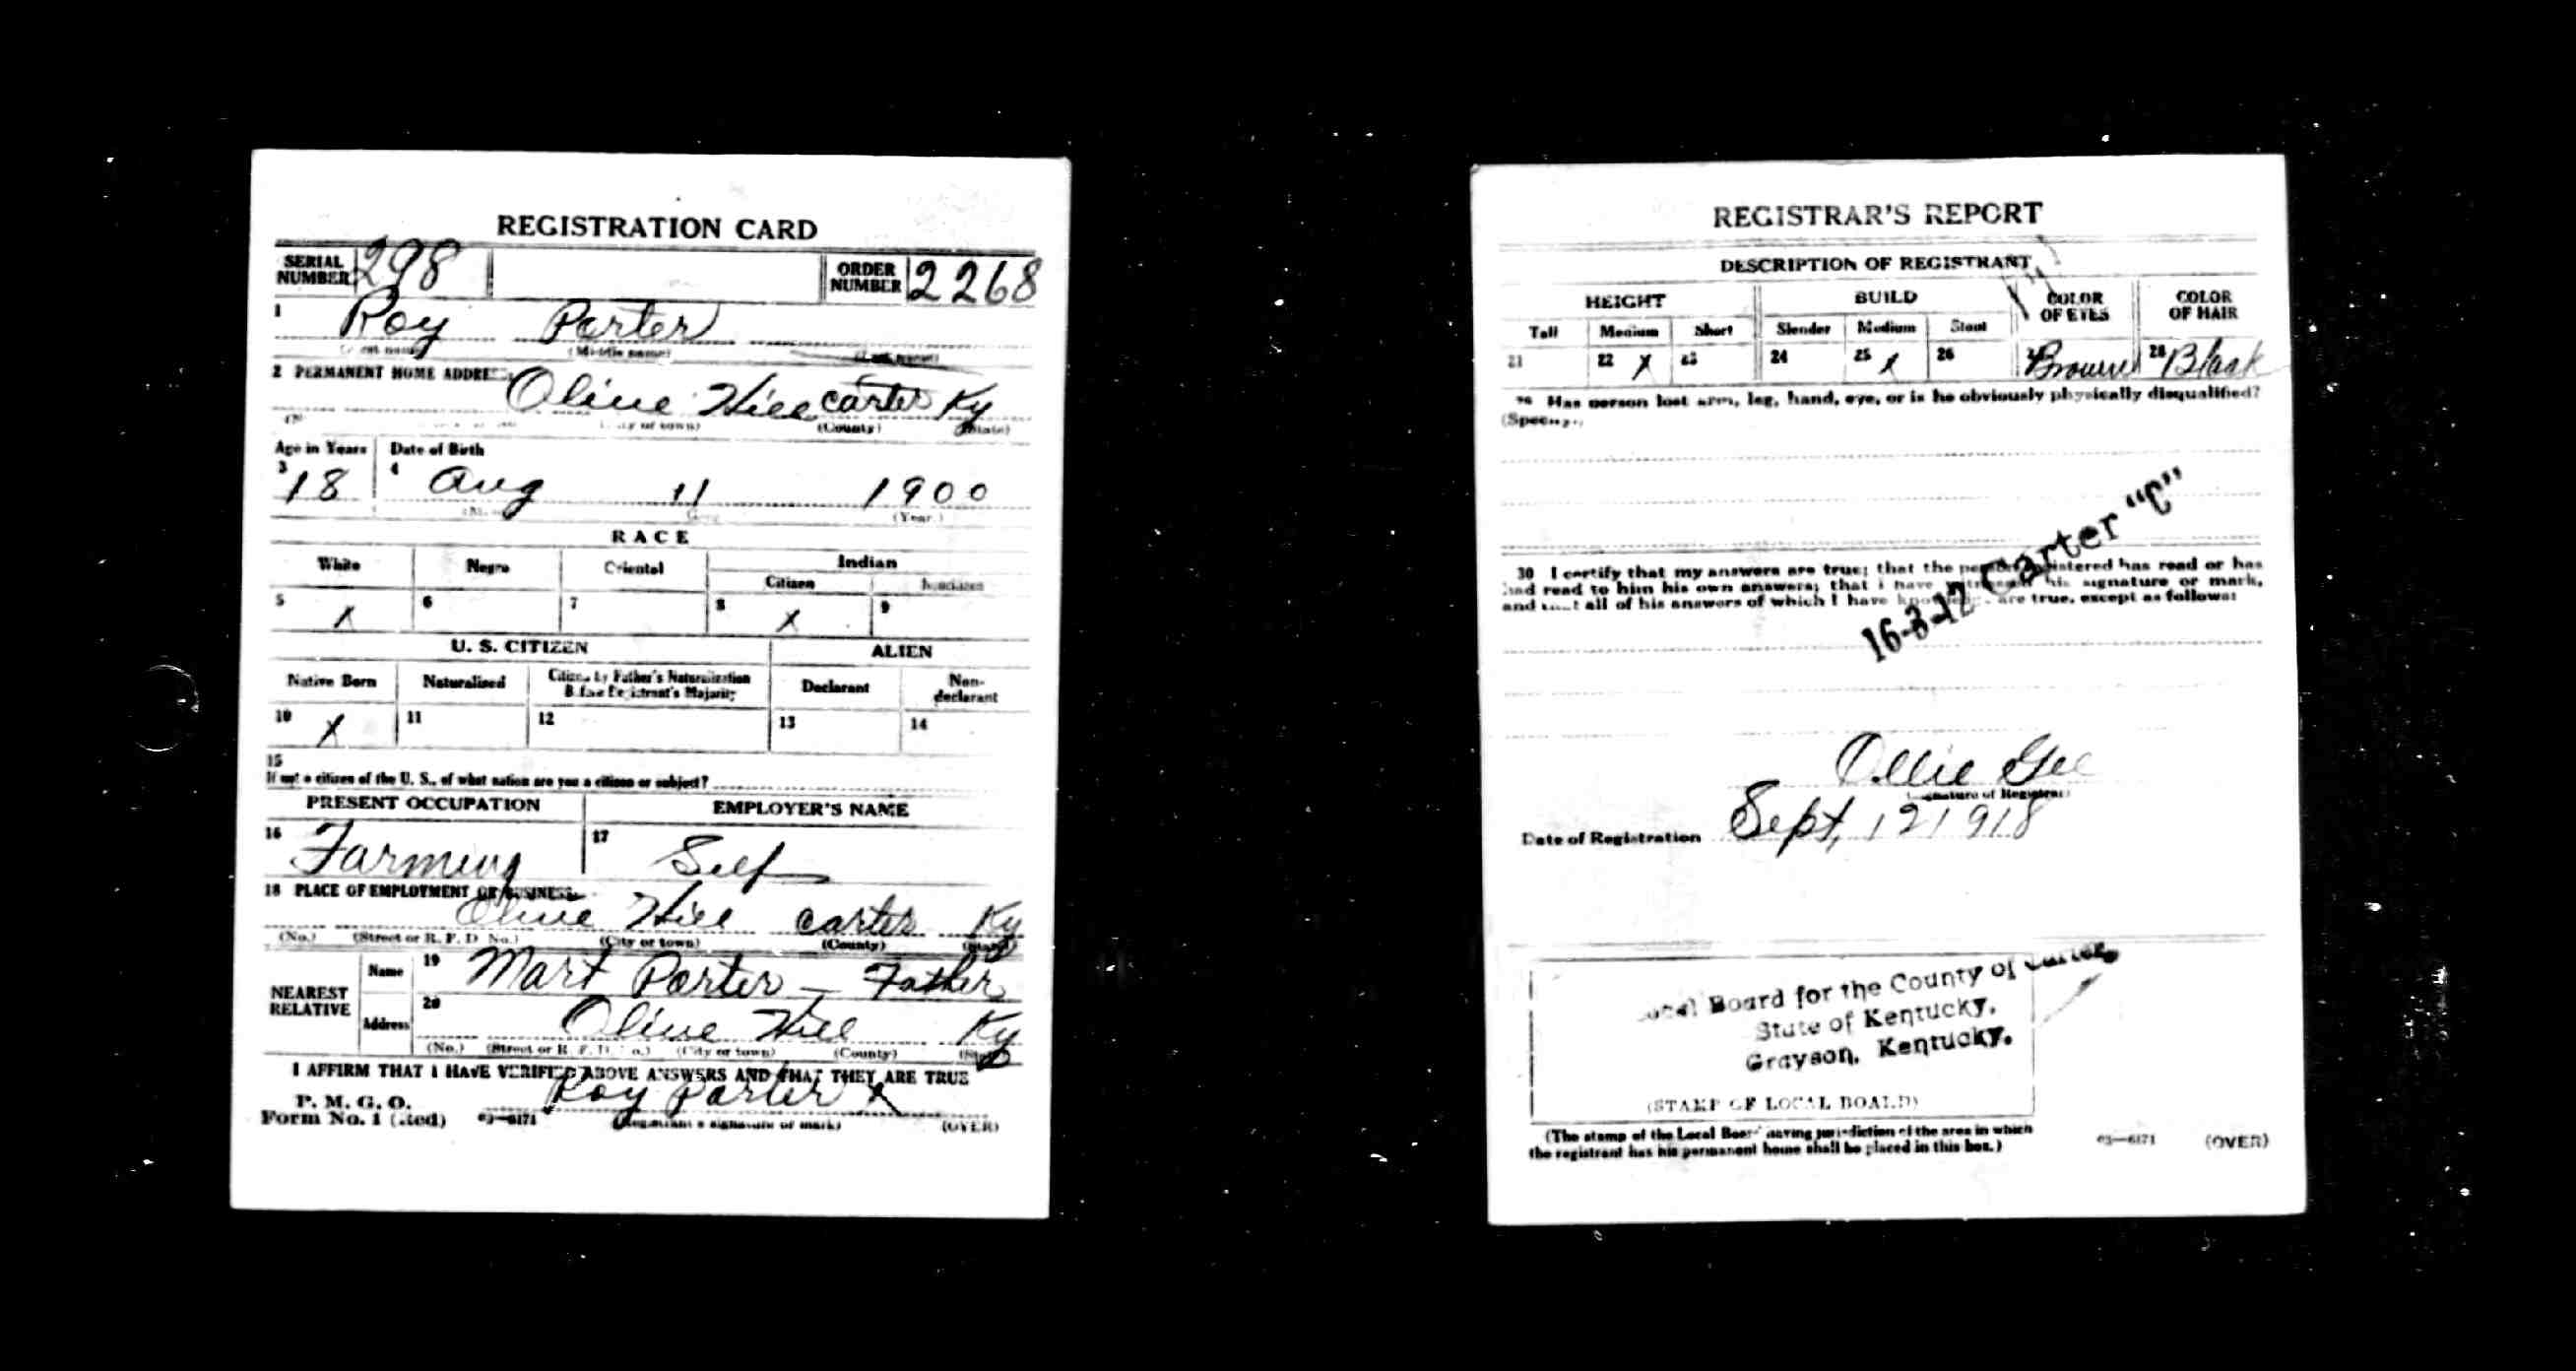 REGISTRATION CARD
SERIAL NUMBER 298 ORDER NUMBER 2268
1 Roy Porter
(Middle name)
2 PERMANENT HOME ADDRESS:
Olive Hill Carter Ky
(County) (State)
Age in Years Date of Birth
3 18 4 Aug 11 1900
(Year.)
RACE
White Negro Oriental Indian
Citizen Noncitizen
5 X 6 7 8 X 9
U. S. CITIZEN ALIEN
Native Born Naturalized Citizen by Father's Naturalization Before Registrant's Majority Declarant Non-declarant
10 X 11 12 13 14
15
If not a citizen of the U. S., of what nation are you a citizen or subject?
PRESENT OCCUPATION EMPLOYER'S NAME
16 Farming 17 Self
18 PLACE OF EMPLOYMENT OR BUSINESS:
Olive Hill Carter Ky
(No.) (Street or R. F. D. No.) (City or town) (County) (State)
NEAREST RELATIVE Name 19 Mart Porter - Father
Address 20 Olive Hill Ky
(No.) (Street or R. F. D. No.) (City or town) (County) (State)
I AFFIRM THAT I HAVE VERIFIED ABOVE ANSWERS AND THAT THEY ARE TRUE
P. M. G. O.
Form No. 1 (Red) 03—6171 Roy Porter X
(Registrant's signature or mark) (OVER)
REGISTRAR'S REPORT
DESCRIPTION OF REGISTRANT
HEIGHT BUILD COLOR OF EYES COLOR OF HAIR
Tall Medium Short Slender Medium Stout
21 22 X 23 24 25 X 26 27 Brown 28 Black
29 Has person lost arm, leg, hand, eye, or is he obviously physically disqualified?
(Specify.)
16-3-12 Carter "C"
30 I certify that my answers are true; that the person registered has read or has
had read to him his own answers; that I have witnessed his signature or mark,
and that all of his answers of which I have knowledge are true, except as follows:
Ollie Gee
(Signature of Registrar)
Date of Registration Sept, 12 1918
Local Board for the County of Carter,
State of Kentucky,
Grayson, Kentucky.
(STAMP OF LOCAL BOARD)
(The stamp of the Local Board having jurisdiction of the area in which
the registrant has his permanent home shall be placed in this box.)
03—6171 (OVER)